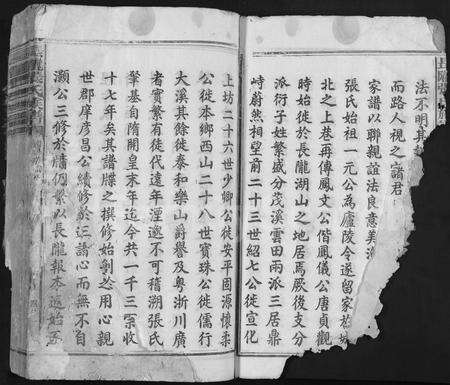 法不明其
而路人視之諸君
家譜以聯親誼法良意美
張氏始祖一元公為廬陵令遂留家
北之上巷再傳鳳文公偕鳳儀公唐貞觀
時始徙於長龍湖山之地居焉厥後支分
派衍子姓繁盛分茂溪雲田兩派三居鼎
峙蔚然相望前二十三世紹七公徙宣化
上坊二十六世少卿公徙安平固源懷柔
公徙本鄉西山二十八世寶珠公徙儒行
大溪其餘徙泰和樂山爵譽及粵浙川廣
者實繁有徒代遠年湮邈不可稽溯張氏
肇基自隋開皇末年迄今共一千三 收
十七年矣其譜牒之撰修始剏 用心親
世郡庠彥昌公續修於 請心而無不自
灝公三修於 仍繁以長龍報本返始